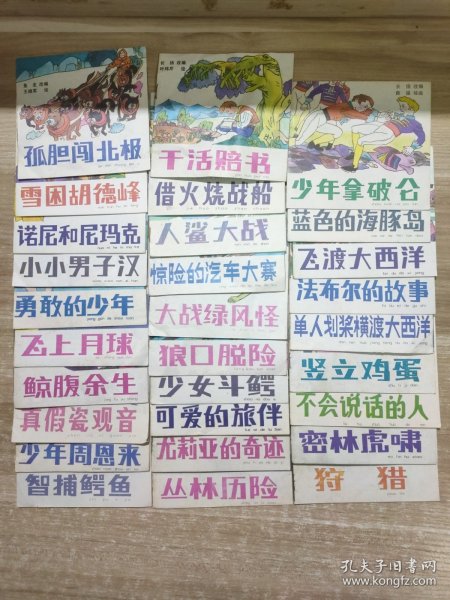 孤胆闯北极
雪困胡德峰
诺尼和尼玛克
小小男子汉
勇敢的少年
飞上月球
鲸腹余生
真假瓷观音
少年周恩来
智捕鳄鱼
干活赔书
借火烧战船
人鲨大战
惊险的汽车大赛
大战绿风怪
狼口脱险
少女斗鳄
可爱的旅伴
尤莉亚的奇迹
丛林历险
少年拿破仑
蓝色的海豚岛
飞渡大西洋
法布尔的故事
单人划桨横渡大西洋
竖立鸡蛋
不会说话的人
密林虎啸
狩猎
孔夫子旧书网
www.kongfz.com